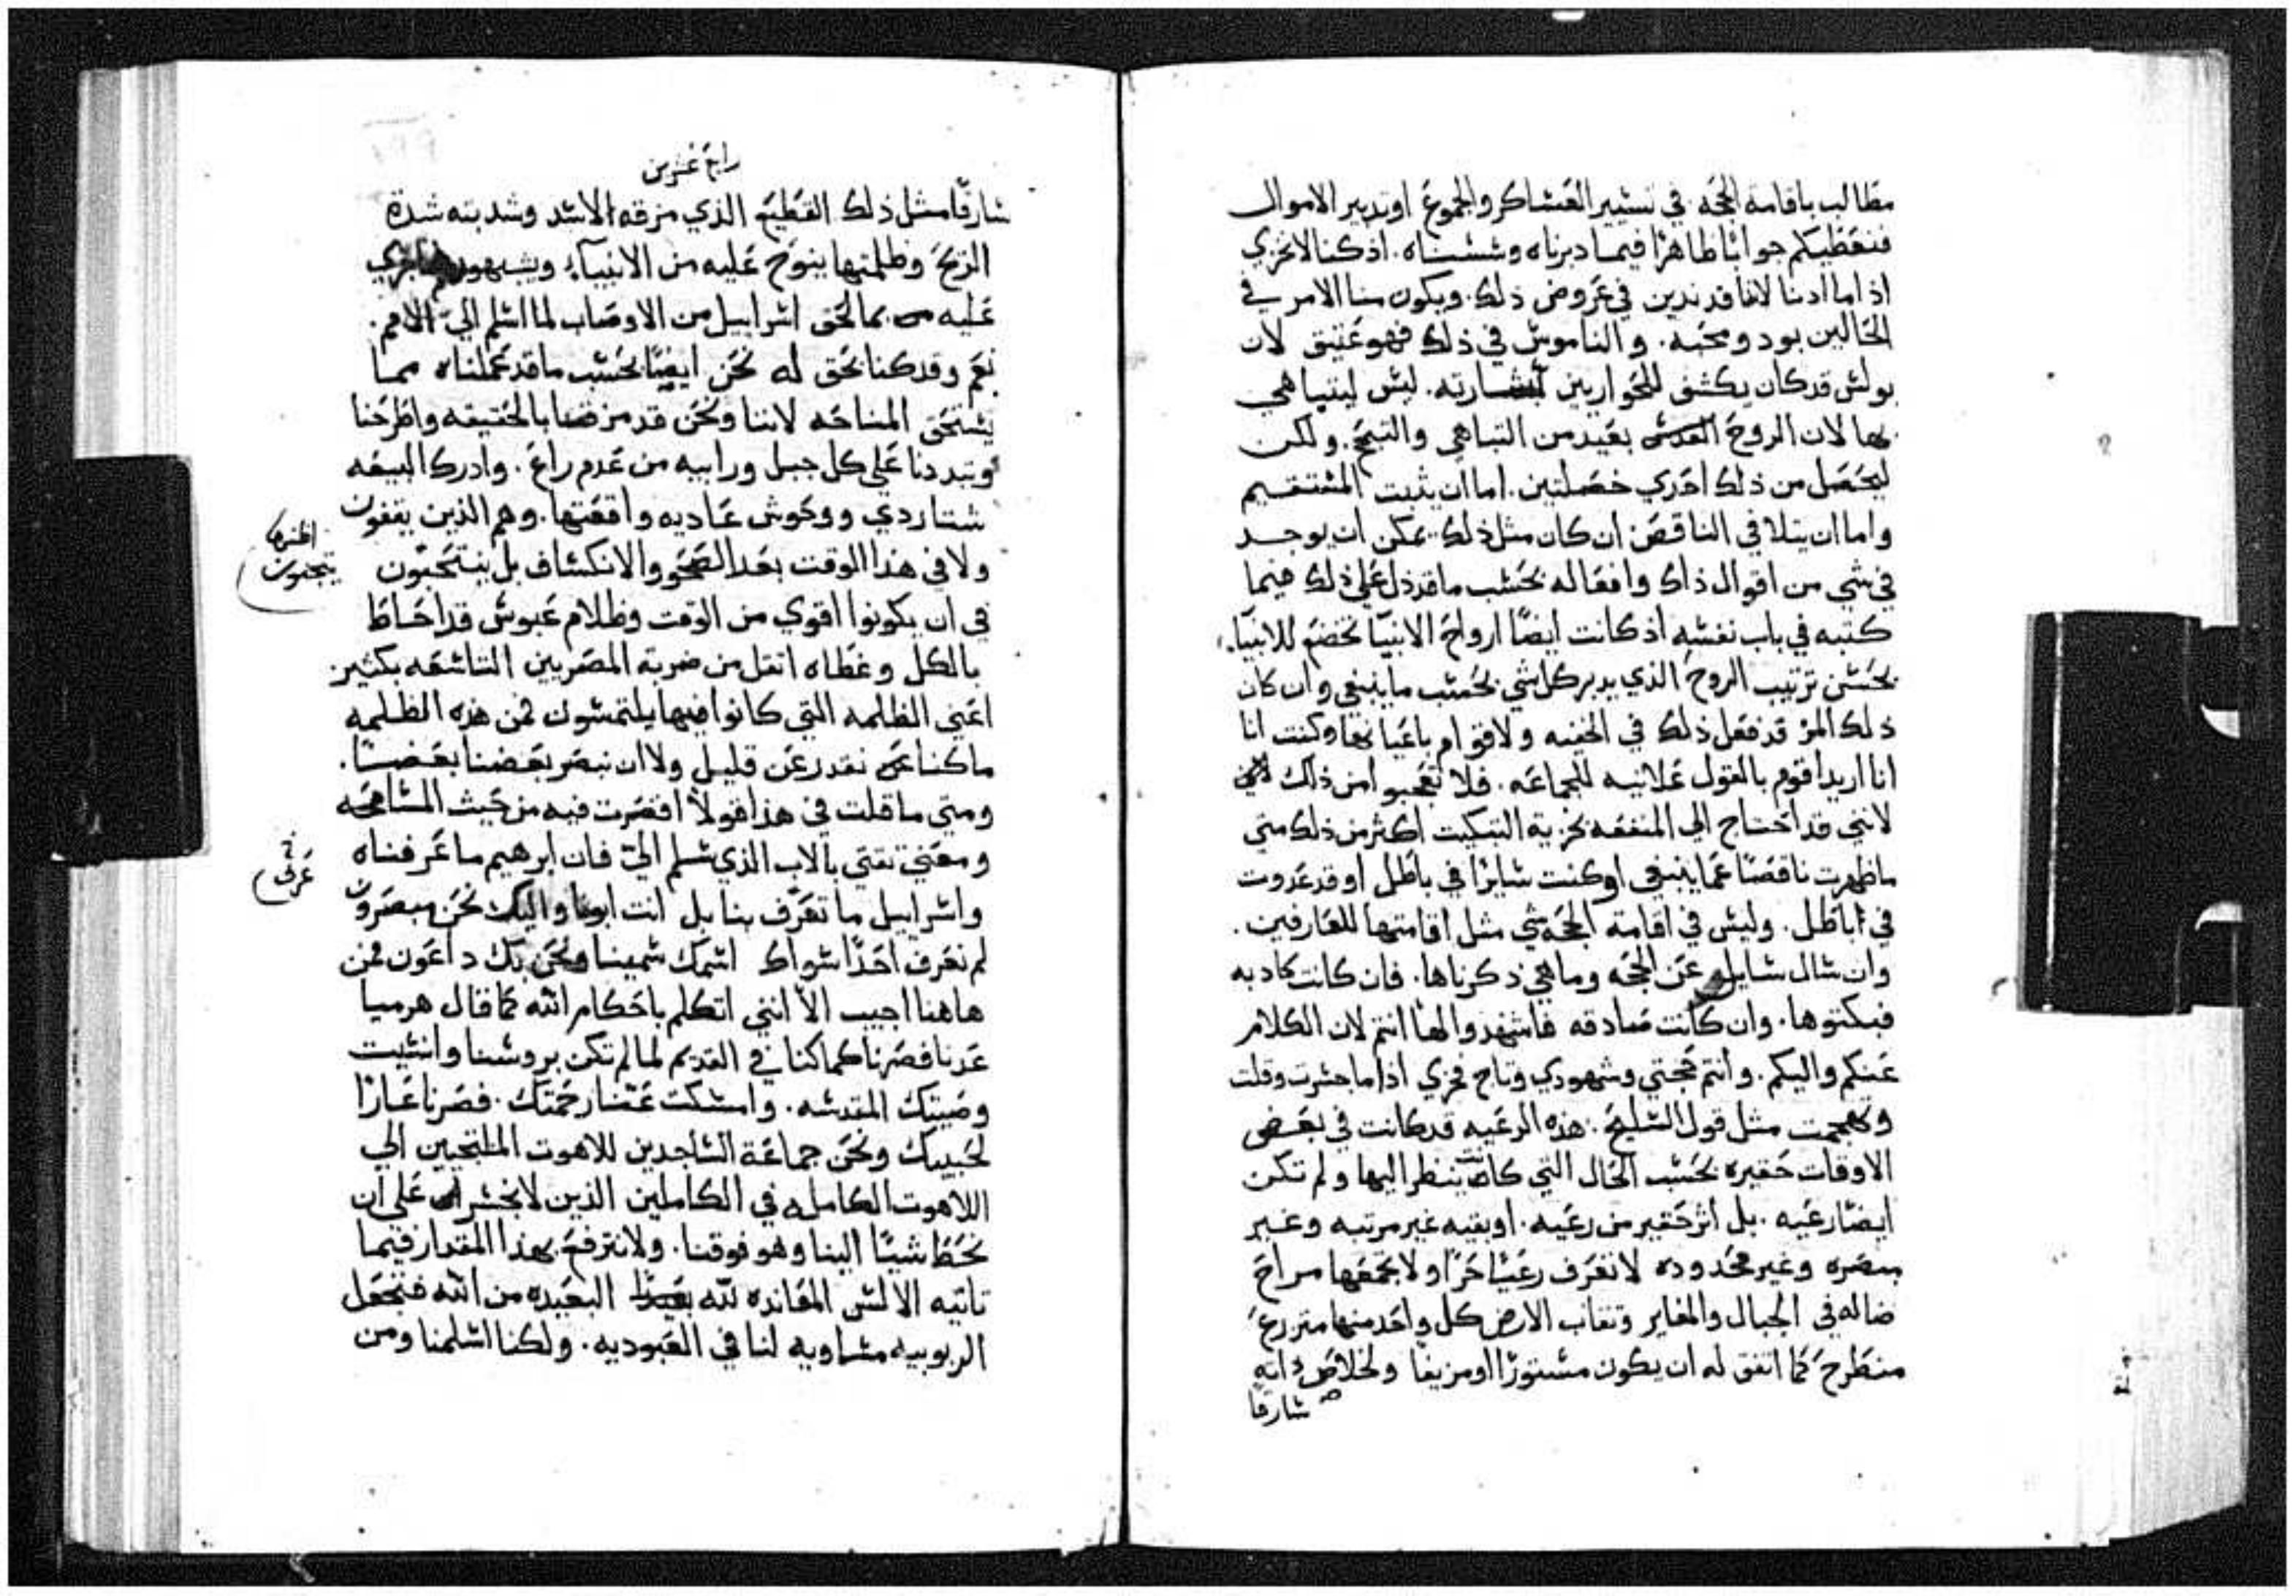 مطالب باقامة الحجه في تسيير العساكر والجموع او تدبير الاموال
فنعطيكم جوابًا ظاهرًا فيما دبرناه وسسناه. اذ كنا لا نخزي
اذا ما ادنا لاننا قد ندين في عروض ذلك. ويكون منا الامر في
الحالين بود ومحبه. والناموس في ذلك فهو عتيق لان
بولس قد كان يكشف للحواريين بشارته. ليس ليتباهي
بها لان الروح القدس بعيد من التباهي والتبجح. ولكن
ليحصل من ذلك احدي خصلتين. اما ان يثبت المستقيم
واما ان يتلافي الناقص ان كان مثل ذلك يمكن ان يوجد
في شي من اقوال ذاك وافعاله بحسب ما قد دل علي ذلك فيما
كتبه في باب نفسه اذ كانت ايضًا ارواح الانبيا تخضع للانبيآء
بحسن ترتيب الروح الذي يدبر كل شي بحسب ما ينبغي وان كان
ذلك المر قد فعل ذلك في الخفيه ولاقوام باعيانها وكنت انا
انا اريد اقوم بالقول علانيه للجماعه. فلا تعجبوا من ذلك
لانني قد احتاج الي المنفعه بحرية التبكيت اكثر من ذلك متي
ما ظهرت ناقصًا عما ينبغي او كنت سايرًا في باطل او قد عدوت
في اباطل. وليس في اقامة الحجه شي مثل اقامتها للعارفين.
وان سال سايل عن الحجه وما هي ذكرناها. فان كانت كادبه
فبكتوها. وان كانت صادقه فاشهدوا لها انتم لان الكلام
عنكم واليكم. وانتم حجتي وشهودي وتاج فخري اذا ما جسرت وقلت
وتهجمت مثل قول السليح. هذه الرعيه قد كانت في بعض
الاوقات حقيره بحسب الحال التي كانت ينظر اليها ولم تكن
ايضًا رعيه. بل اثر حقير من رعيه. او بقيه غير مرتبه وغير
مبصره وغير محدوده لا تعرف رعيًا حرًا ولا يجمعها مراح
ضاله في الجبال والمغاير وتقاب الارض كل واحد منها متزرع
منطرح كما اتفق له ان يكون مستورًا او مزيفًا ولخلاص ذاته
سارقًا
رابع عشرين
سارقًا مثل ذلك القطيع الذي مزقه الاسد وشدبته شدة
الريح وظلمتها ينوح عليه من الانبيآء ويشبهون ما جري
عليه بما لحق اسراييل من الاوصاب لما اسلم الي الامم.
نعم وقد كنا يحق له نحن ايضًا بحسب ما قد عملناه مما
يستحق المناحه لاننا ونحن قد مزقنا بالحقيقه واطرحنا
وتبددنا علي كل جبل ورابيه من عدم راع. وادرك البيعه
شتا ردي ووحوش عاديه واقعتها. وهم الذين يقفون
ولا في هذا الوقت بعد الصحو والانكشاف بل ينتحبون
اظنه
يتجحون
في ان يكونوا اقوي من الوقت وظلام عبوس قد احاط
بالكل وغطاه اثقل من ضربة المصريين التاسعه بكثير
اعني الظلمه التي كانوا فيها يلتمسون فمن هذه الظلمه
ما كنا نقدر عن قليل ولا ان نبصر بعضنا بعضًا.
ومتي ما قلت في هذا قولاً اقصرت فيه من حيث المسامحه
ومعني ثقتي بالاب الذي سلم الي فان ابرهيم ما عرفناه
عرفنا
واسراييل ما تعرف بنا بل انت ابونا واليك نحن مبصرون
لم نعرف احدًا سواك اسمك سمينا ونحن بك داعون فمن
هاهنا اجيب الا انني اتكلم باحكام الله كما قال هرميا
عدنا فصرنا كما كنا في القديم لما لم تكن بروسنا وانسيت
وصيتك المقدسه. وامسكت عنا رحمتك. فصرنا عارًا
لحبيبك ونحن جماعة الساجدين للاهوت الملتجيين الي
اللاهوت الكامل في الكاملين الذين لا نجسر علي ان
نحط شيًا الينا وهو فوقنا. ولا نترفع بهذا المقدار فيما
تاتيه الالسن المعانده لله البعيده من الله فنجعل
الربوبيه مساويه لنا في العبوديه. ولكنا اسلمنا ومن